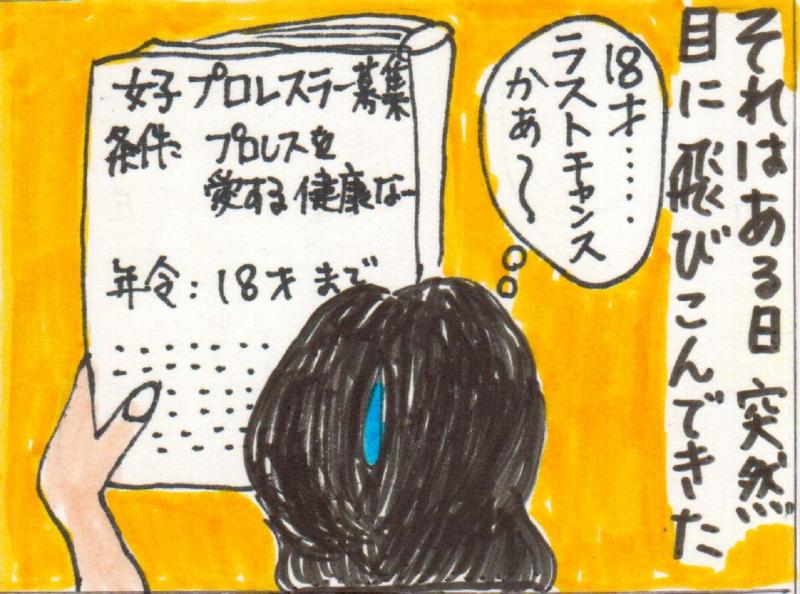 それはある日 突然
目に飛びこんできた
18才‥‥‥
ラストチャンス
かぁ〜
女子プロレスラー募集
条件 プロレスを
愛する健康な
年令:18才まで